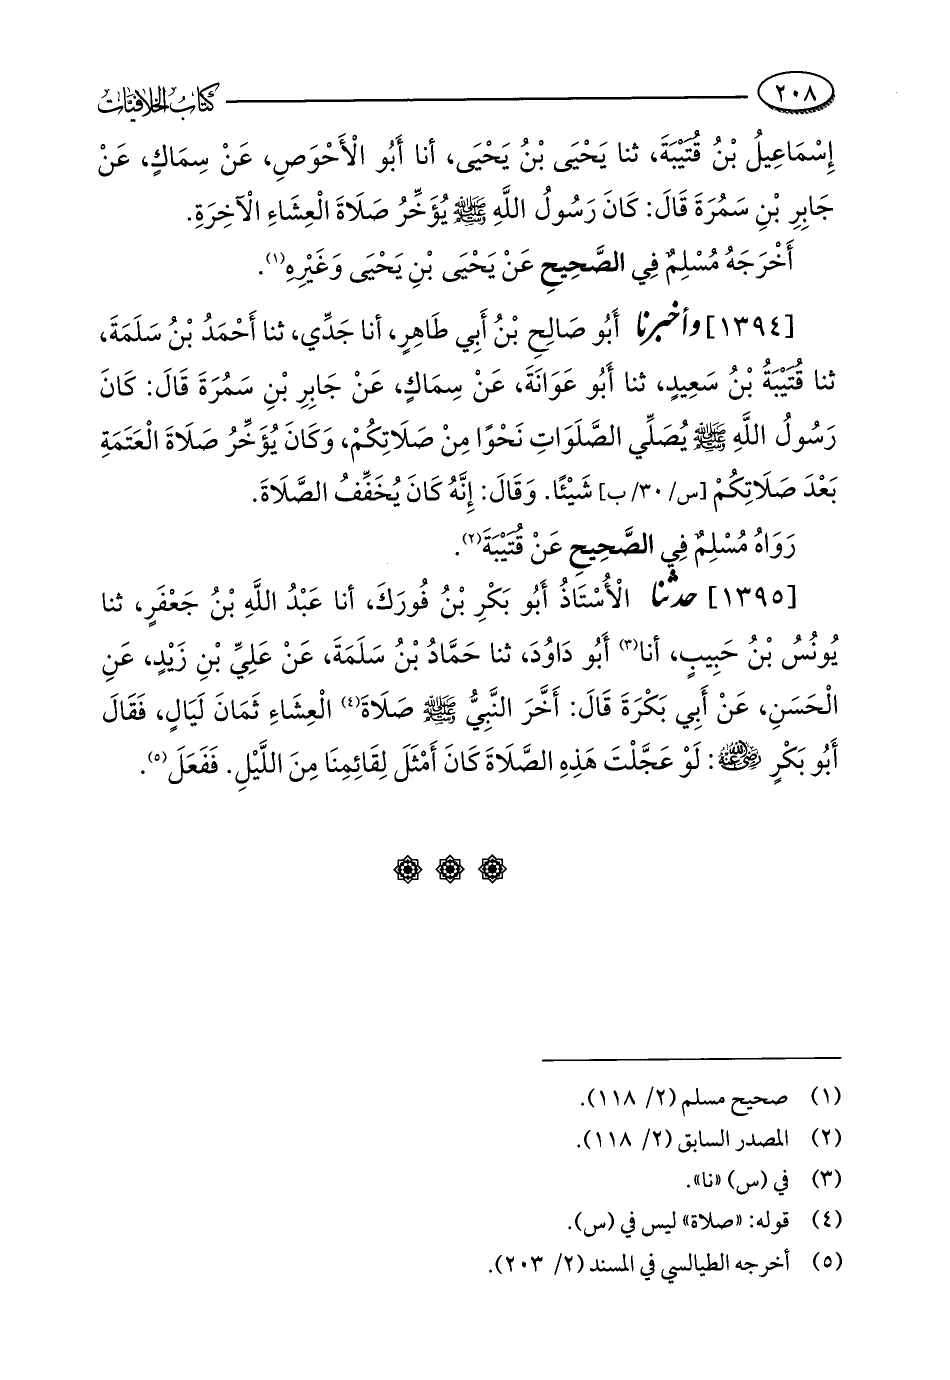 ٢٠٨ كتاب الخلافيات
إِسْمَاعِيلُ بْنُ قُتَيْبَةَ، ثنا يَحْيَى بْنُ يَحْيَى، أنا أَبُو الْأَحْوَصِ، عَنْ سِمَاكٍ، عَنْ
جَابِرِ بْنِ سَمُرَةَ قَالَ: كَانَ رَسُولُ اللَّهِ ﷺ يُؤَخِّرُ صَلَاةَ الْعِشَاءِ الْآخِرَةِ.
أَخْرَجَهُ مُسْلِمٌ فِي الصَّحِيحِ عَنْ يَحْيَى بْنِ يَحْيَى وَغَيْرِهِ(١).
[١٣٩٤] وأخبرنا أَبُو صَالِحِ بْنُ أَبِي طَاهِرٍ، أنا جَدِّي، ثنا أَحْمَدُ بْنُ سَلَمَةَ،
ثنا قُتَيْبَةُ بْنُ سَعِيدٍ، ثنا أَبُو عَوَانَةَ، عَنْ سِمَاكٍ، عَنْ جَابِرِ بْنِ سَمُرَةَ قَالَ: كَانَ
رَسُولُ اللَّهِ ﷺ يُصَلِّي الصَّلَوَاتِ نَحْوًا مِنْ صَلَاتِكُمْ، وَكَانَ يُؤَخِّرُ صَلَاةَ الْعَتَمَةِ
بَعْدَ صَلَاتِكُمْ [س/ ٣٠/ ب] شَيْئًا. وَقَالَ: إِنَّهُ كَانَ يُخَفِّفُ الصَّلَاةَ.
رَوَاهُ مُسْلِمٌ فِي الصَّحِيحِ عَنْ قُتَيْبَةَ(٢).
[١٣٩٥] حدثنا الْأُسْتَاذُ أَبُو بَكْرِ بْنُ فُورَكَ، أنا عَبْدُ اللَّهِ بْنُ جَعْفَرٍ، ثنا
يُونُسُ بْنُ حَبِيبٍ، أنا(٣) أَبُو دَاوُدَ، ثنا حَمَّادُ بْنُ سَلَمَةَ، عَنْ عَلِيِّ بْنِ زَيْدٍ، عَنِ
الْحَسَنِ، عَنْ أَبِي بَكْرَةَ قَالَ: أَخَّرَ النَّبِيُّ ﷺ صَلَاةَ(٤) الْعِشَاءِ ثَمَانَ لَيَالٍ، فَقَالَ
أَبُو بَكْرٍ رضي الله عنه: لَوْ عَجَّلْتَ هَذِهِ الصَّلَاةَ كَانَ أَمْثَلَ لِقَائِمِنَا مِنَ اللَّيْلِ. فَفَعَلَ(٥).
(١) صحيح مسلم (٢/ ١١٨).
(٢) المصدر السابق (٢/ ١١٨).
(٣) في (س) «نا».
(٤) قوله: «صلاة» ليس في (س).
(٥) أخرجه الطيالسي في المسند (٢/ ٢٠٣).